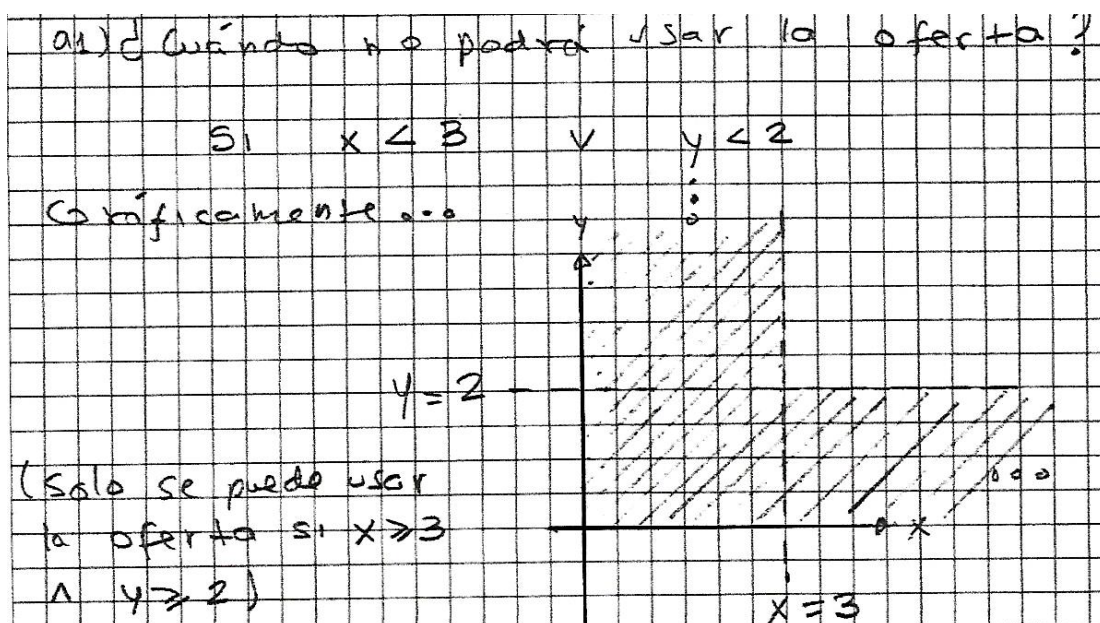 a1) ¿Cuándo no podrá usar la oferta?
Si x < 3 v y < 2
Gráficamente...
y
y = 2
(Solo se puede usar
la oferta si x ≥ 3
∧ y ≥ 2)
x
x = 3